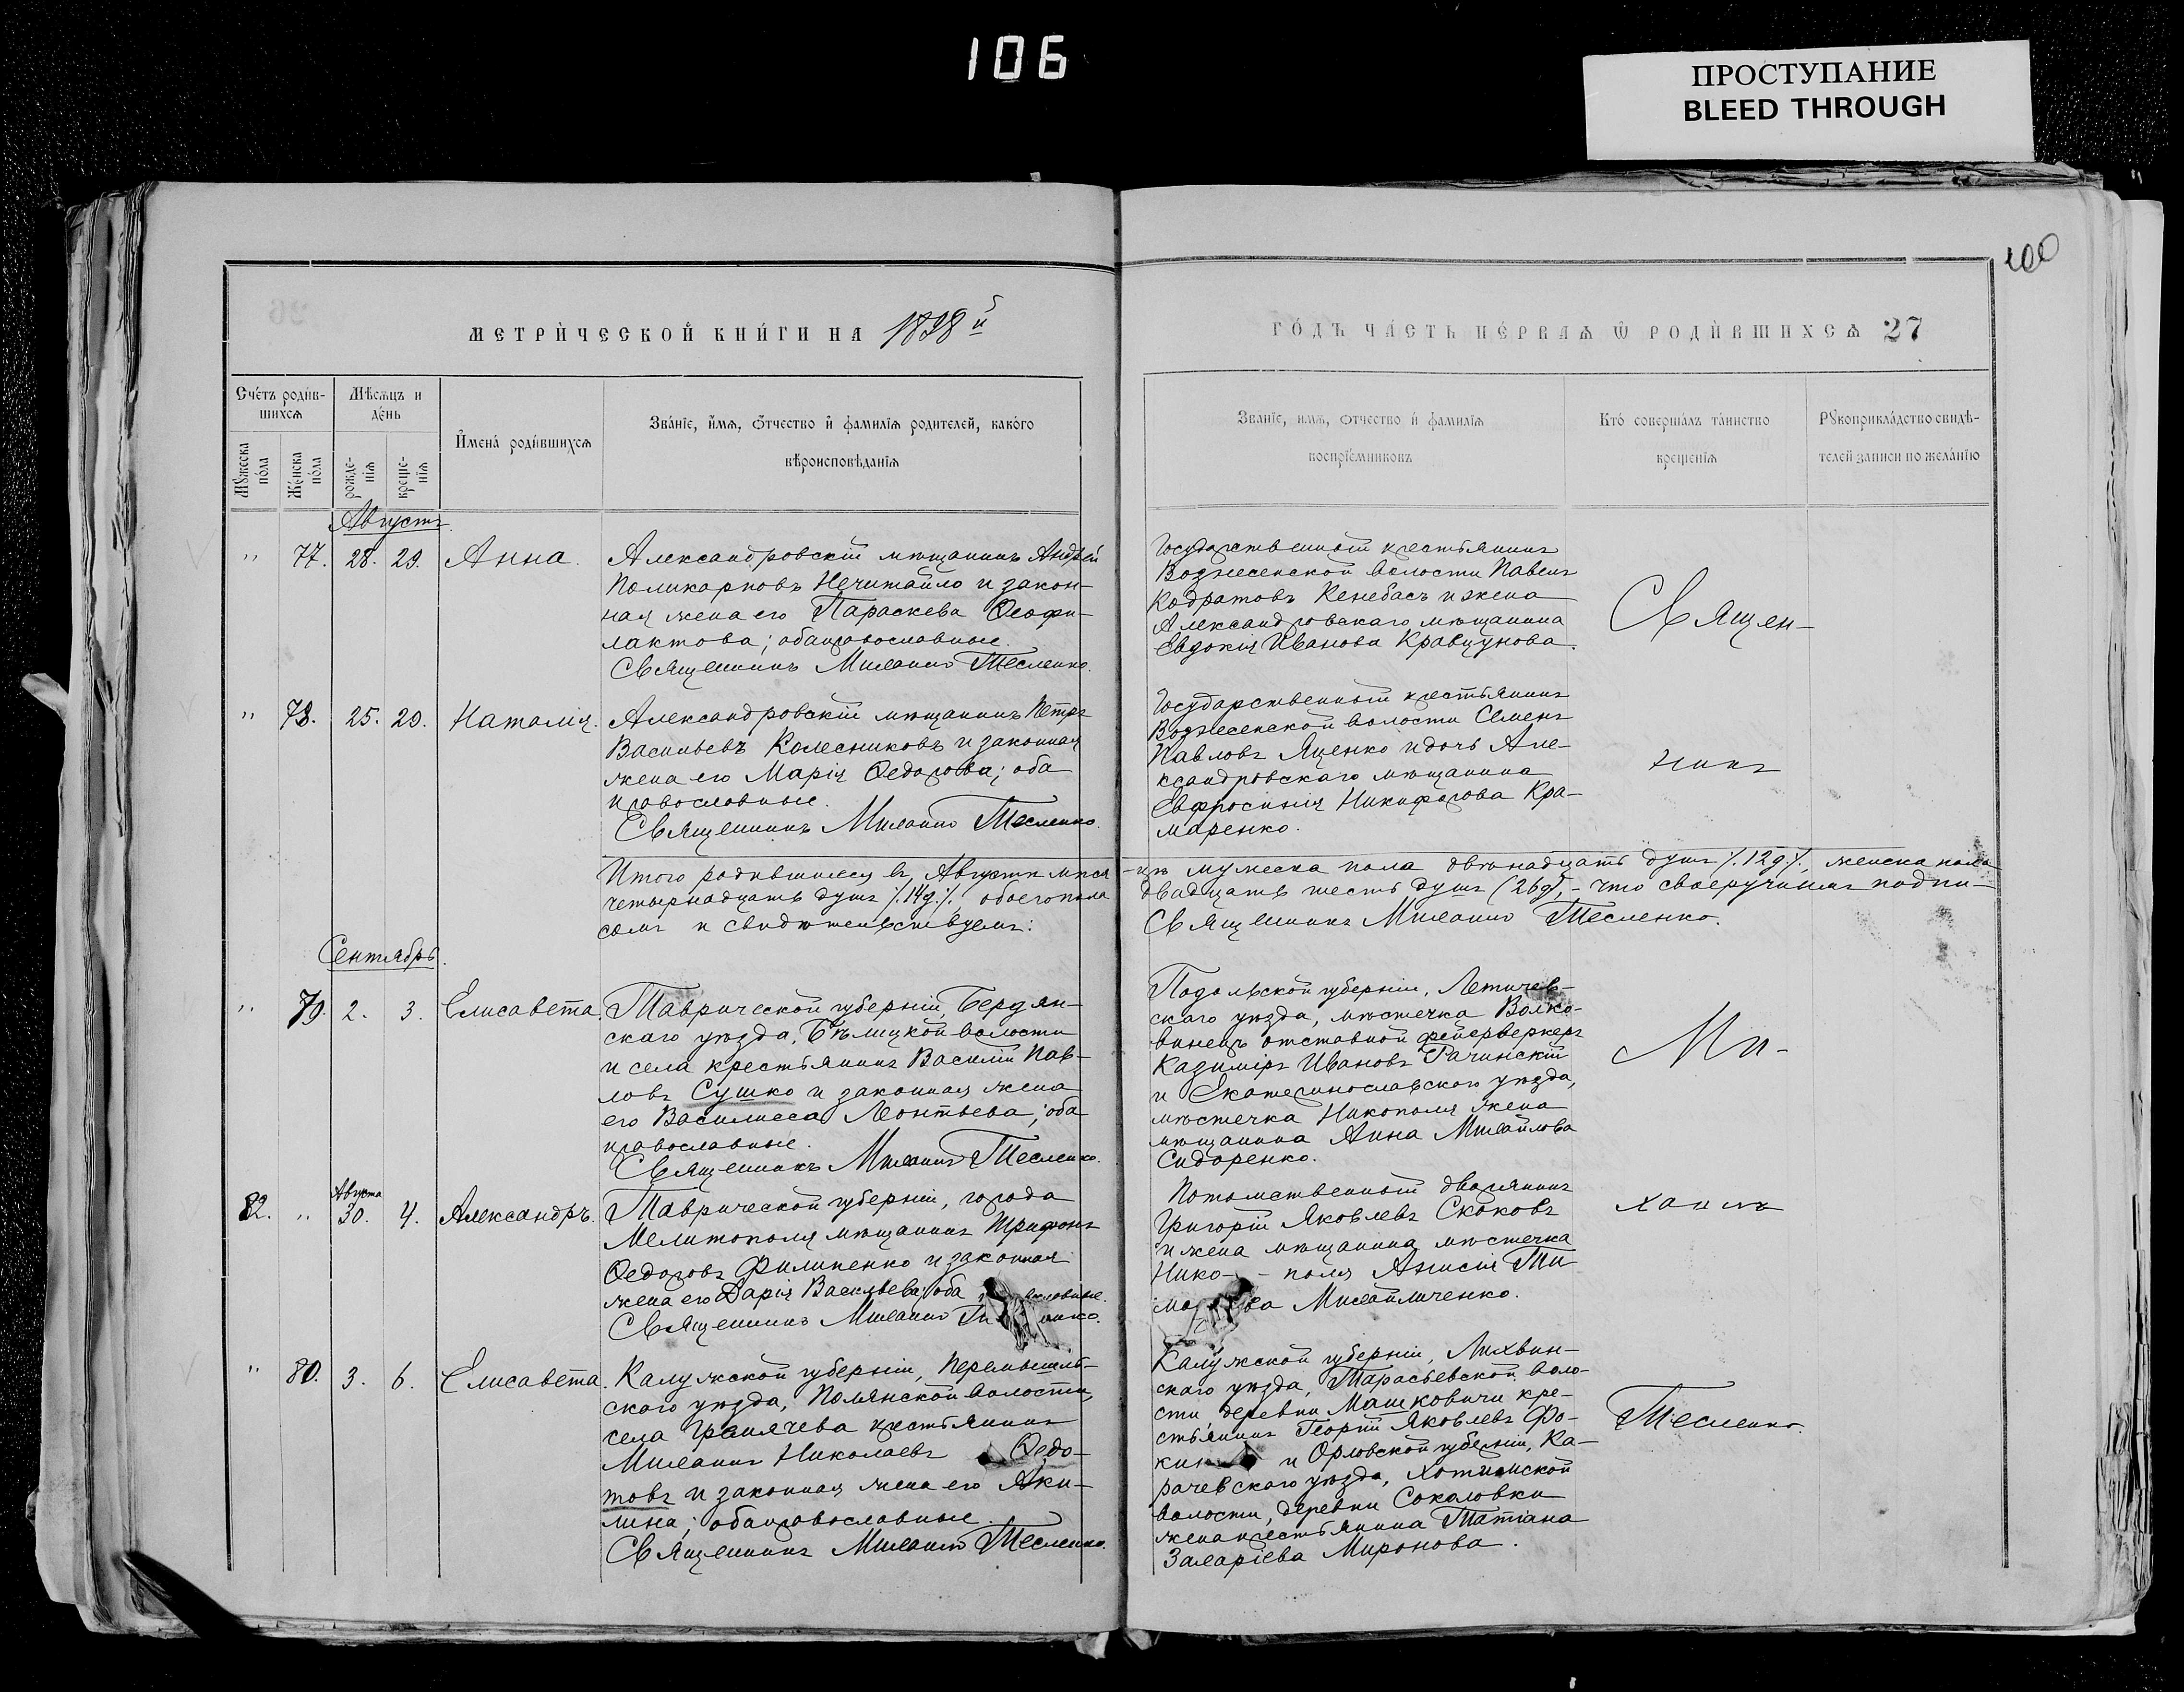 106
ПРОСТУПАНИЕ
BLEED THROUGH
100
МЕТРИЧЕСКОЙ КНИГИ НА 1898й
ГОДЪ ЧАСТЬ ПЕРВАѦ Ѡ РОДИВШИХСѦ 27
Счетъ родив-
шихсѧ
Мѣсѧцъ и
день
Мꙋжеска
пола
Женска
пола
рожде-
нїѧ
креще-
нїѧ
Имена родившихсѧ
Званїе, имѧ, ѿчество и фамилїѧ родителей, какого
вѣроисповѣданїѧ
Званїе, имѧ, ѿчество и фамилїѧ
воспрїемниковъ
Кто совершалъ таинство
крещенїѧ
Рꙋкоприкладство свидѣ-
телей записи по желанїю
Августъ.
" 77. 28. 29. Анна.
Александровскій мѣщанинъ Андрей
Поликарповъ Нечитайло и закон-
ная жена его Параскева Ѳеофи-
лактова; оба православные.
Священникъ Михаилъ Тесленко.
Государственный крестьянинъ
Вознесенской волости Павелъ
Кодратовъ Кенебасъ и жена
Александровскаго мѣщанина
Евдокія Иванова Кравцунова.
Священ-
" 78. 25. 29. Наталія.
Александровскій мѣщанинъ Петръ
Васильевъ Колесниковъ и законная
жена его Марія Ѳедорова; оба
православные.
Священникъ Михаилъ Тесленко.
Государственный крестьянинъ
Вознесенской волости Семенъ
Павловъ Яценко и дочь Але-
ксандровскаго мѣщанина
Евфросинія Никифорова Кра-
маренко.
никъ
Итого родившихся въ Августѣ мѣся-цѣ мужеска пола двѣнадцать душъ /.12д./., женска пола
четырнадцать душъ /.14д./., обоего пола двадцать шесть душъ (26д), - что своеручнымъ подпи-
сомъ и свидѣтельствуемъ: Священникъ Михаилъ Тесленко.
Сентябрь.
" 79. 2. 3. Елисавета.
Таврической губерніи, Бердян-
скаго уѣзда, Бѣлицкой волости
и села крестьянинъ Василій Пав-
ловъ Сушко и законная жена
его Василисса Леонтьева; оба
православные.
Священникъ Михаилъ Тесленко.
Подольской губерніи, Летичев-
скаго уѣзда, мѣстечка Волко-
винецъ отставной фейерверкеръ
Казиміръ Ивановъ Рачинскій
и Екатеринославского уѣзда,
мѣстечка Никополя жена
мѣщанина Анна Михайлова
Сидоренко.
Ми-
82. " Августа 30. 4. Александръ.
Таврической губерніи, города
Мелитополя мѣщанинъ Трифонъ
Ѳедоровъ Филипенко и законная
жена его Дарія Васильева; оба
Священникъ Михаилъ
Потомственный дворянинъ
Григорій Яковлевъ Скоковъ
и жена мѣщанина мѣстечка
Нико- - поля Анисія Ти
Михайличенко.
хаилъ
" 80. 3. 6. Елисавета.
Калужской губерніи, Перемышль-
скаго уѣзда, Полянской волости,
села крестьянинъ
Михаилъ Николаевъ Ѳедо-
товъ и законная жена его Аки-
лина; оба православные.
Священникъ Михаилъ Тесленко.
Калужской губерніи, Лихвин-
скаго уѣзда, Тарасьевской воло-
сти, деревни Машковичи кре-
стьянинъ Георгій Яковлевъ Фо-
кинъ и Орловской губерніи, Ка-
рачевскаго уѣзда, Хотимской
волости, деревни Соколовки
жена крестьянина Татіана
Захаріева Миронова.
Тесленко.